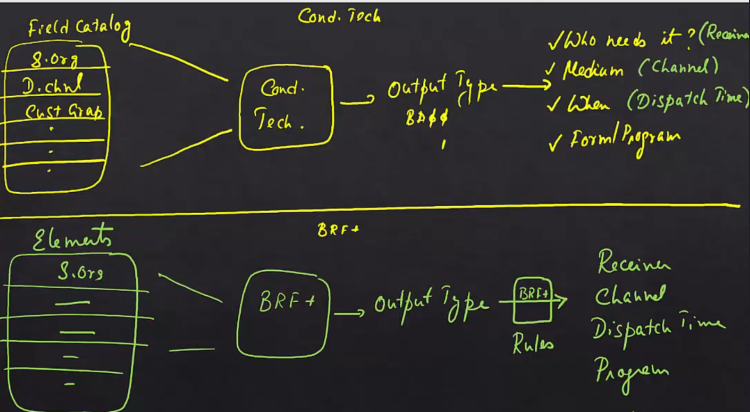 Cond. Tech
Field Catalog
S.org
D.chnl
Cust Grap
Cond.
Tech.
Output Type
BAØØ
✓ Who needs it? (Receiver
✓ Medium (Channel)
✓ When (Dispatch Time)
✓ Form/Program
BRF+
Elements
S.org
BRF+
Output Type
BRF+
Rules
Receiver
Channel
Dispatch Time
Program